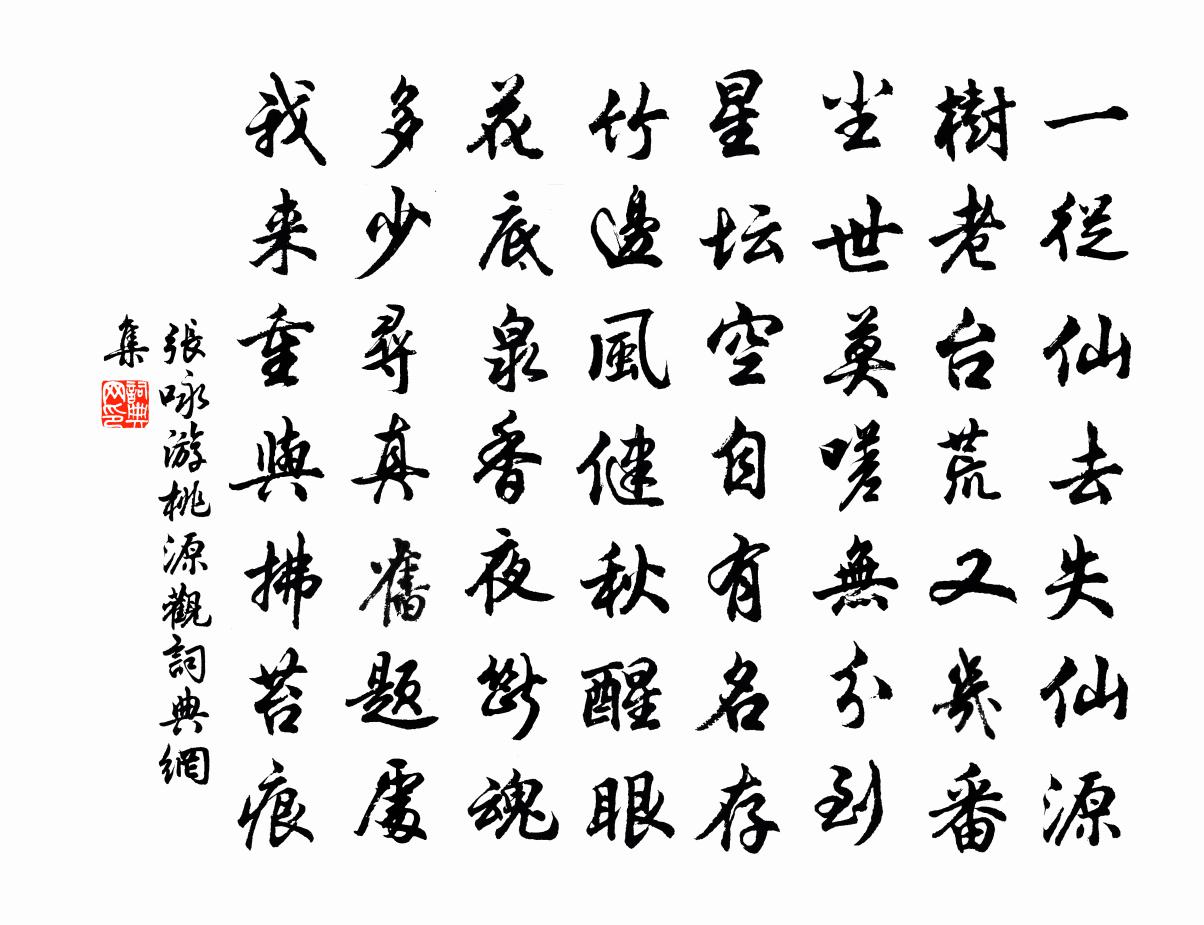 一從仙去失仙源
樹老台荒又幾番
尘世莫嗟無分到
星坛空自有名存
竹邊風健秋醒眼
花底泉香夜斷魂
多少尋真舊題處
我来重與拂苔痕
張咏游桃源觀詞典網
集
詞典
网印